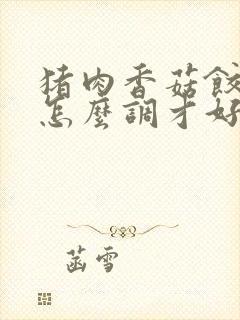 猪肉香菇餃
怎麼調才好
菡雪